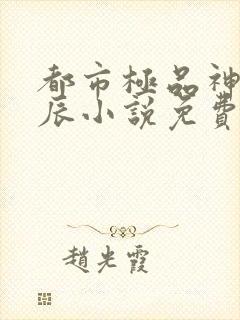 都市極品神
辰小說免費
趙光霞